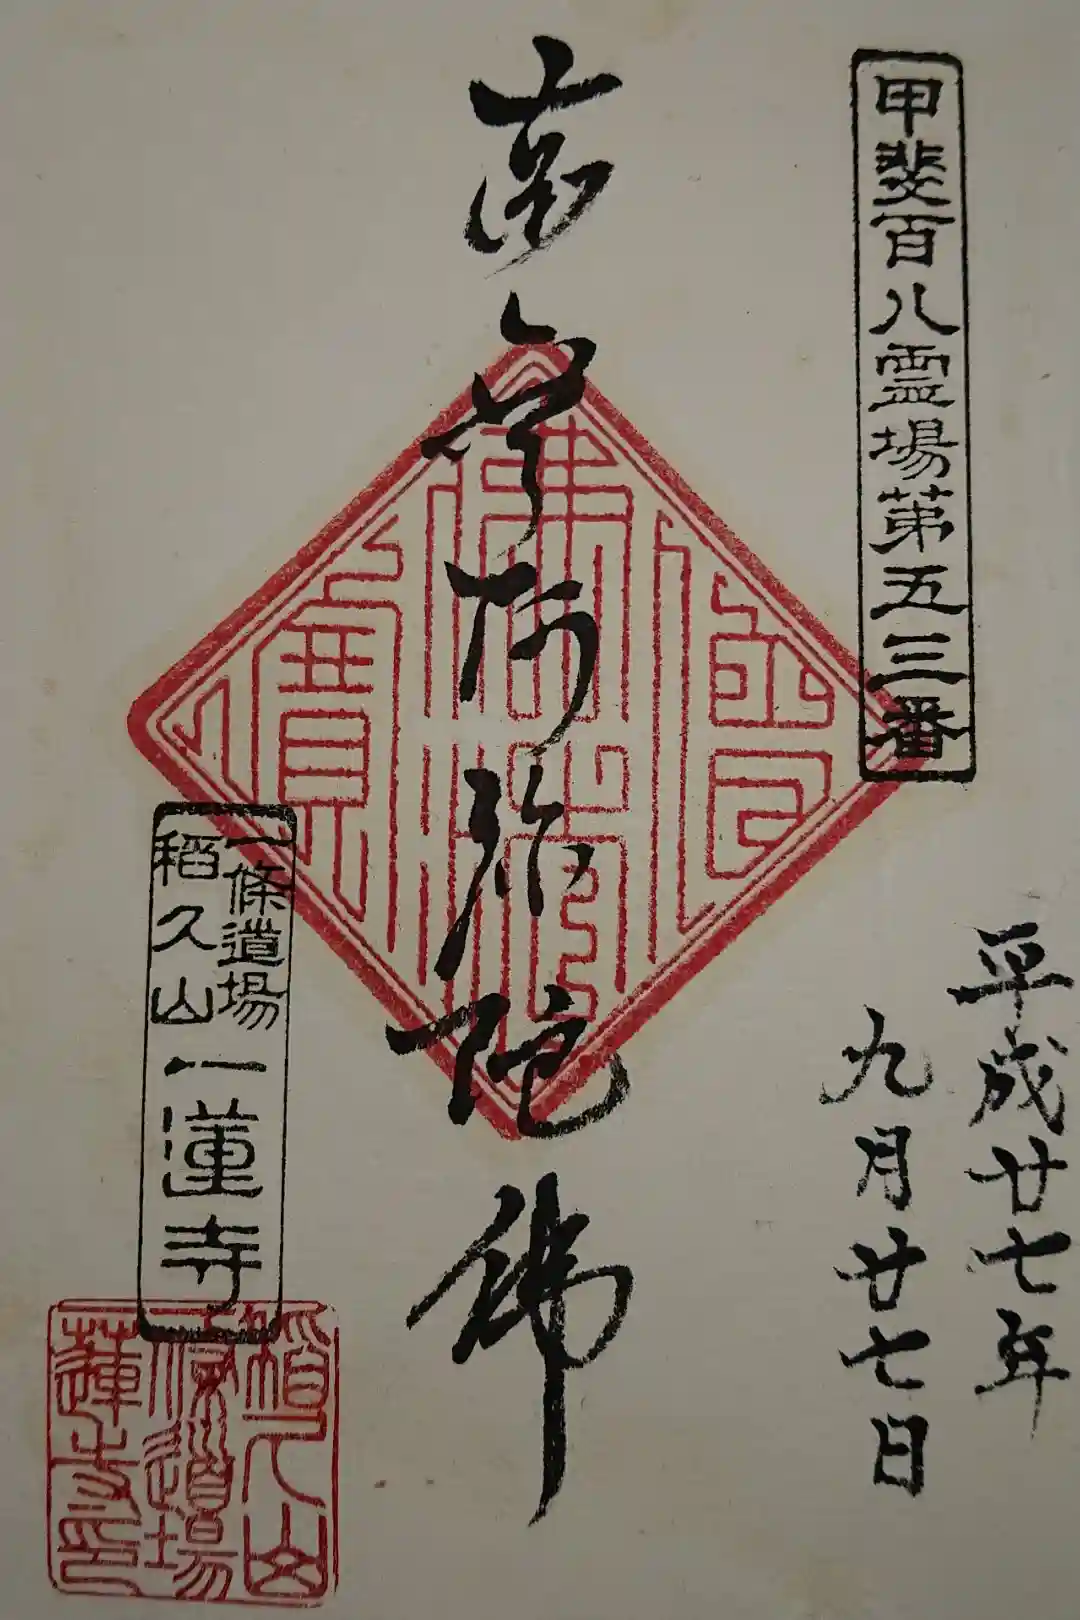 甲斐百八霊場第五三番
平成廿七年
九月廿七日
南無阿弥陀佛
佛法僧寶
一條道場
稲久山
一蓮寺
稲久山
一條道場
一蓮寺印